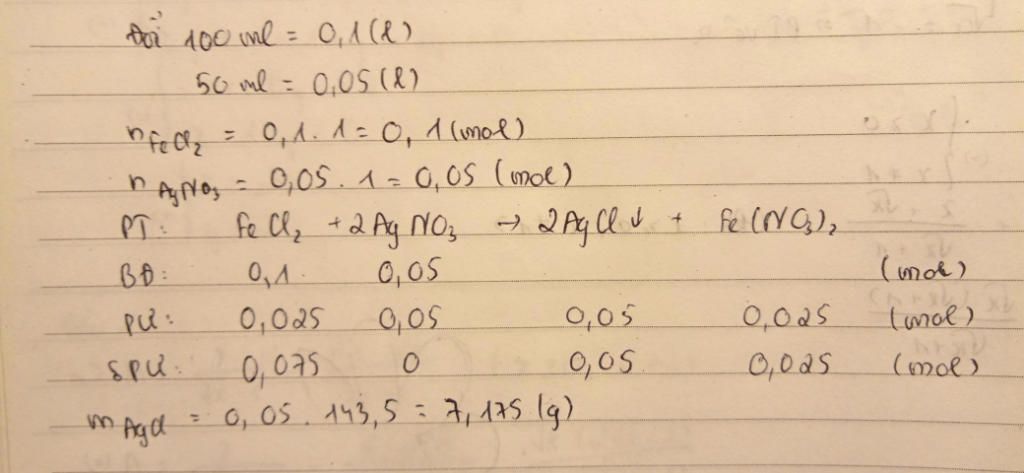 Đổi 100 ml = 0,1 (l)
50 ml = 0,05 (l)
n FeCl₂ = 0,1 . 1 = 0,1 (mol)
n AgNO₃ = 0,05 . 1 = 0,05 (mol)
PT: FeCl₂ + 2AgNO₃ → 2AgCl↓ + Fe(NO₃)₂
BĐ: 0,1 0,05 (mol)
PƯ: 0,025 0,05 0,05 0,025 (mol)
SPƯ: 0,075 0 0,05 0,025 (mol)
m AgCl = 0,05 . 143,5 = 7,175 (g)